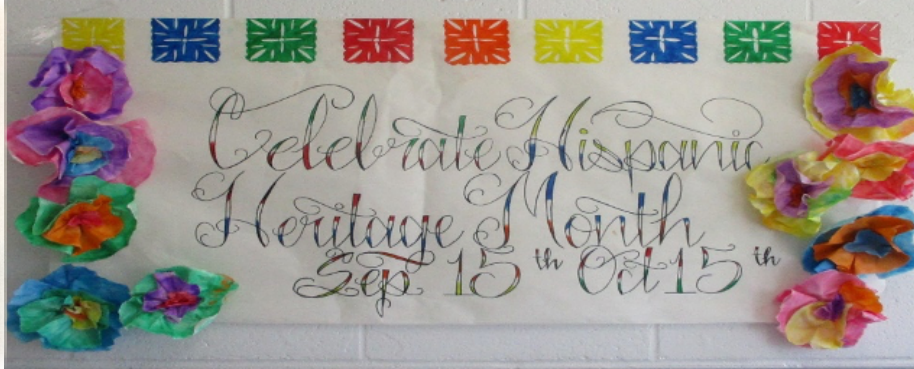 Celebrate Hispanic
Heritage Month
Sep 15th Oct 15th